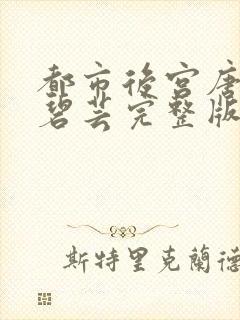 都市後宮唐
碧芸完整版
斯特里克蘭德